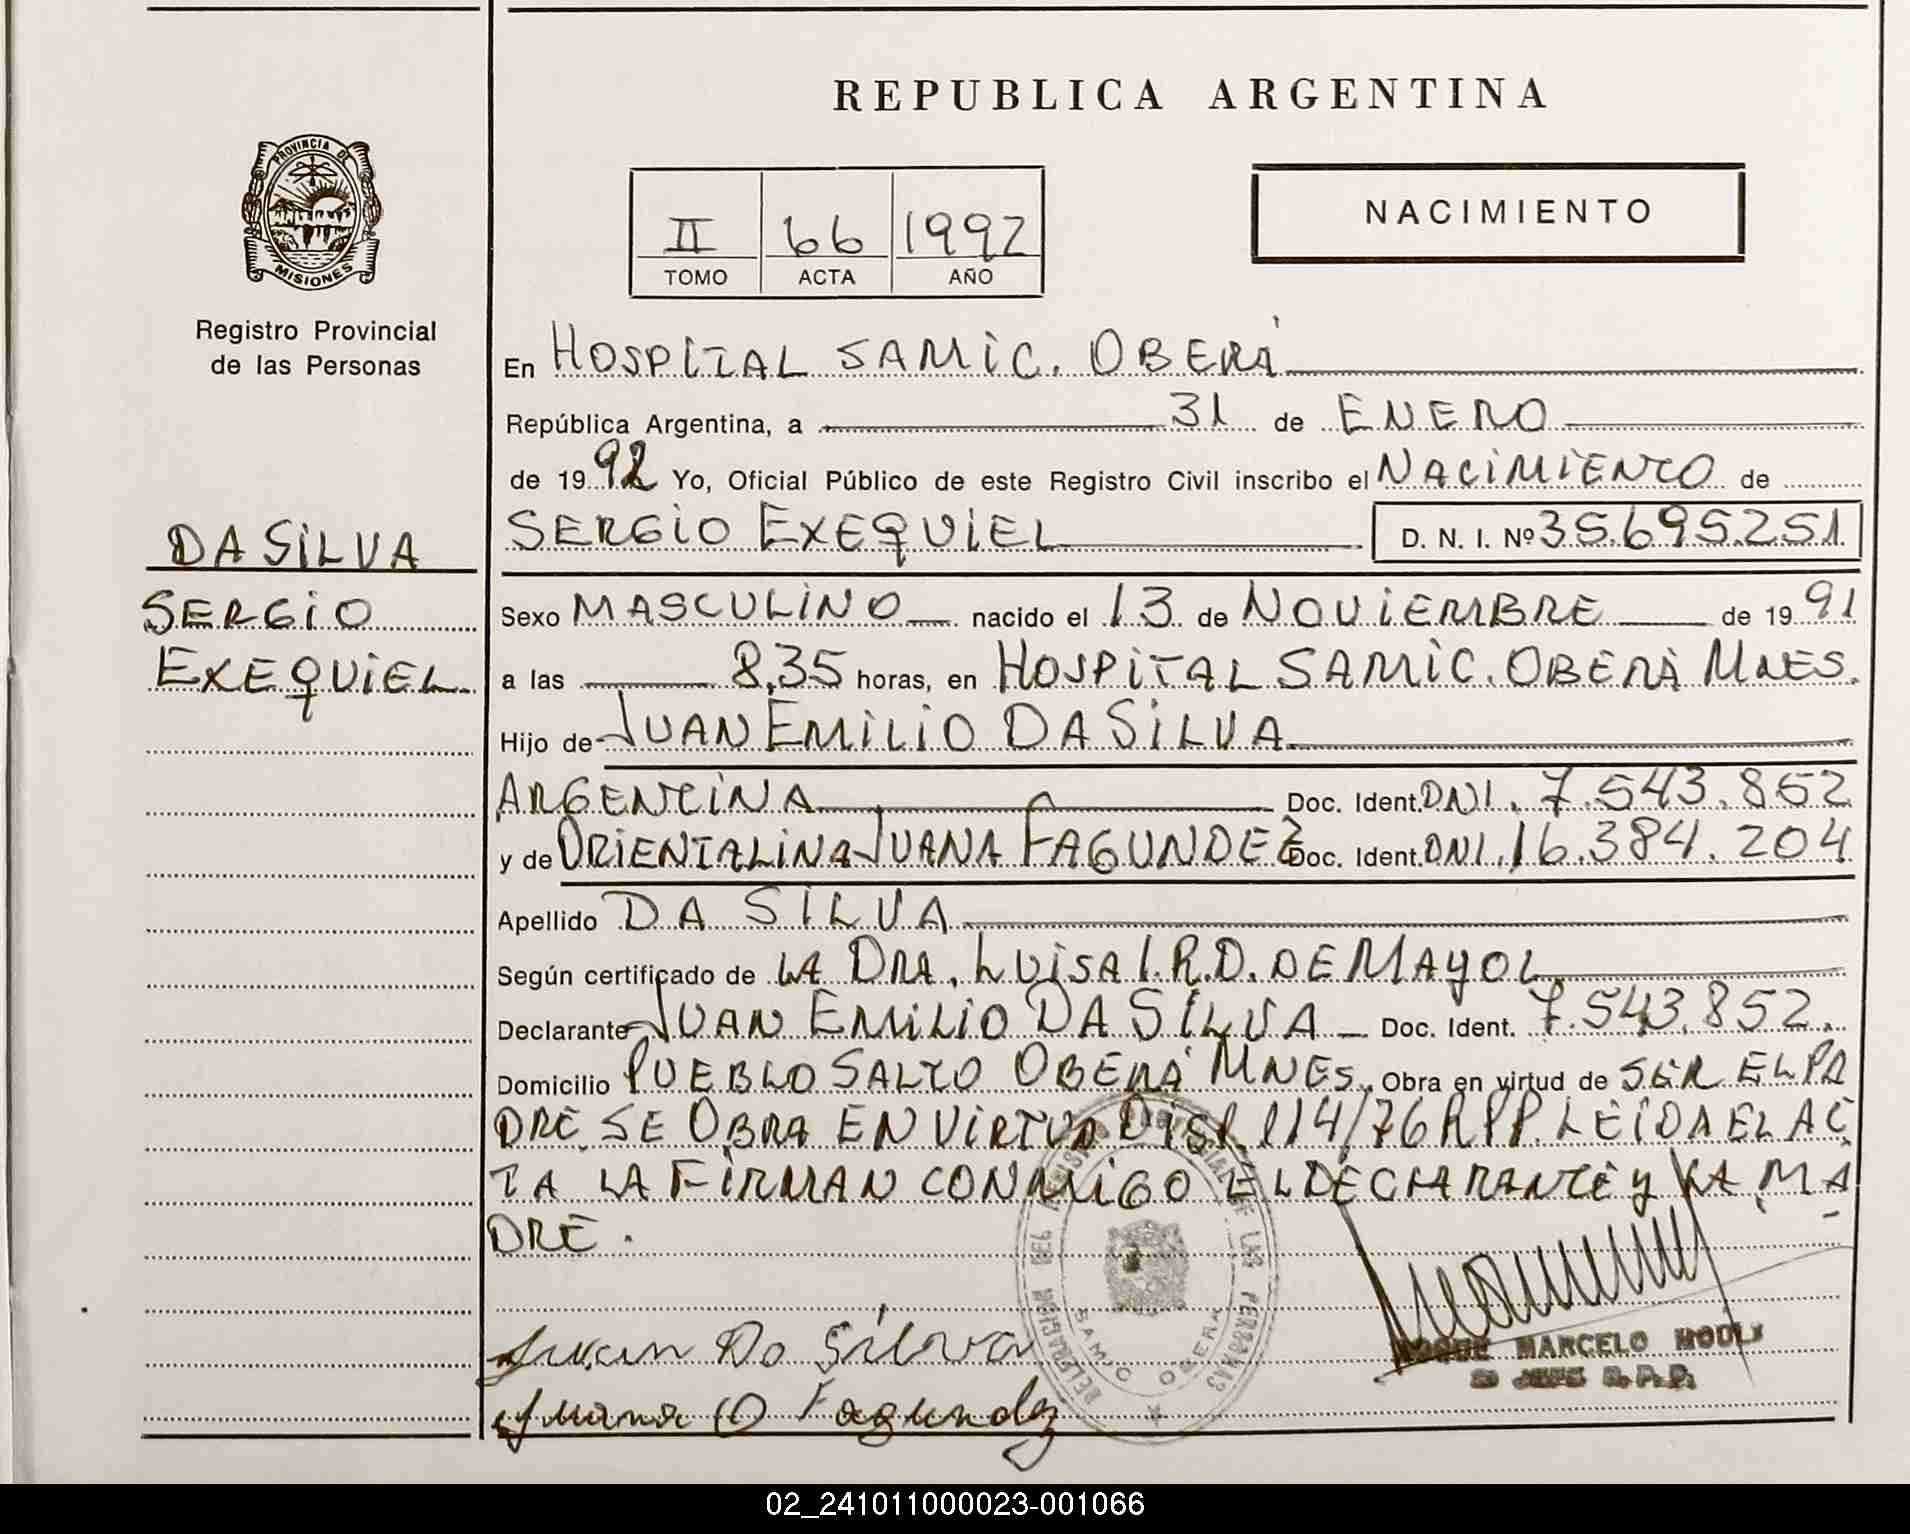 REPUBLICA ARGENTINA
PROVINCIA DE
MISIONES
Registro Provincial
de las Personas
II 66 1992
TOMO ACTA AÑO
NACIMIENTO
DA SILVA
SERGIO
EXEQUIEL
En HOSPITAL SAMIC. OBERÁ
República Argentina, a 31 de ENERO
de 1992 Yo, Oficial Público de este Registro Civil inscribo el NACIMIENTO de
SERGIO EXEQUIEL D. N. I. Nº 35.695.251
Sexo MASCULINO nacido el 13 de NOVIEMBRE de 1991
a las 8,35 horas, en HOSPITAL SAMIC. OBERÁ MNES.
Hijo de JUAN EMILIO DA SILVA
ARGENTINA Doc. Ident. DNI. 7.543.852
y de ORIENTALINA JUANA FAGUNDEZ Doc. Ident. DNI. 16.384.204
Apellido DA SILVA
Según certificado de LA DRA. LUISA I. R. D. DE MAYOL
Declarante JUAN EMILIO DA SILVA Doc. Ident. 7.543.852.
Domicilio PUEBLO SALTO OBERÁ MNES. Obra en virtud de SER EL PA
DRE. SE OBRA EN VIRTUD DISP. 114/76 RPP. LEIDA EL AC
TA LA FIRMAN CONMIGO EL DECLARANTE y LA MA
DRE.
DELEGACION DEL REGISTRO PROVINCIAL DE LAS PERSONAS
SAMIC OBERA
Juan Da Silva
Juana O Fagundez
ROQUE MARCELO
JEFE R.P.P.
02_241011000023-001066